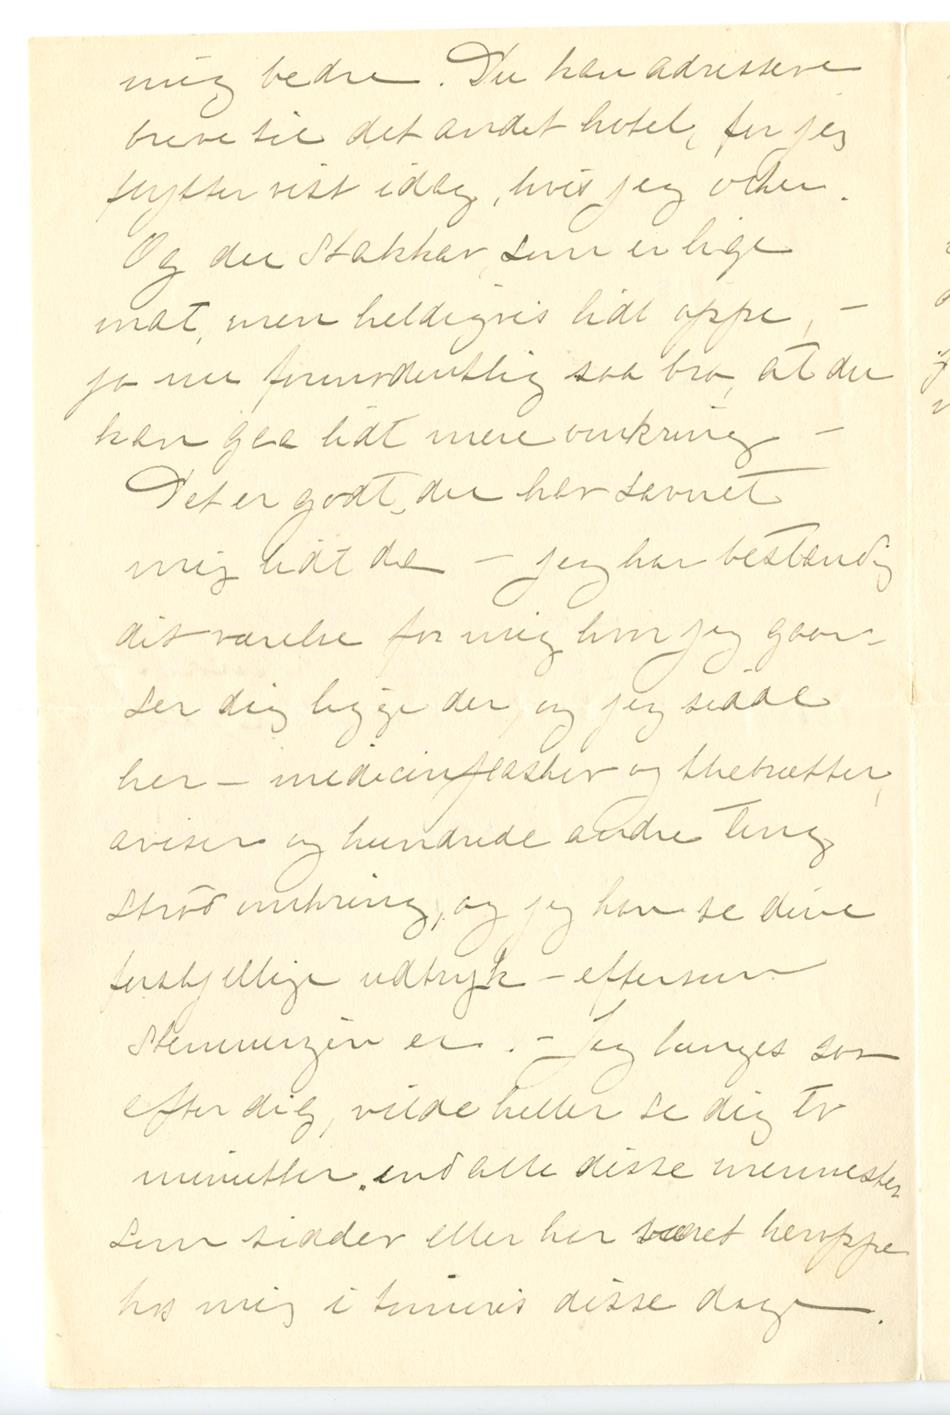 mig bedre. Du kan adressere
breve til det andet hotel, for jeg
flytter vist idag, hvis jeg orker.
Og du Stakkar, som er lige
mat, men heldigvis lidt oppe, –
ja nu formodentlig saa bra, at du
kan gaa lidt mere omkring –
Det er godt, du har savnet
mig lidt da – jeg har bestandig
dit værelse for mig hvor jeg gaar –
ser dig ligge der, og jeg sidde
her – medicinflasker og thebrætter,
aviser og hundrede andre ting
strød omkring, og jeg kan se dine
forskjellige udtryk – eftersom
Stemningen er. – Jeg længes saa
efter dig, vilde heller se dig to
minutter end alle disse mennesker
som sidder eller har været heroppe
hos mig i timevis disse dage.